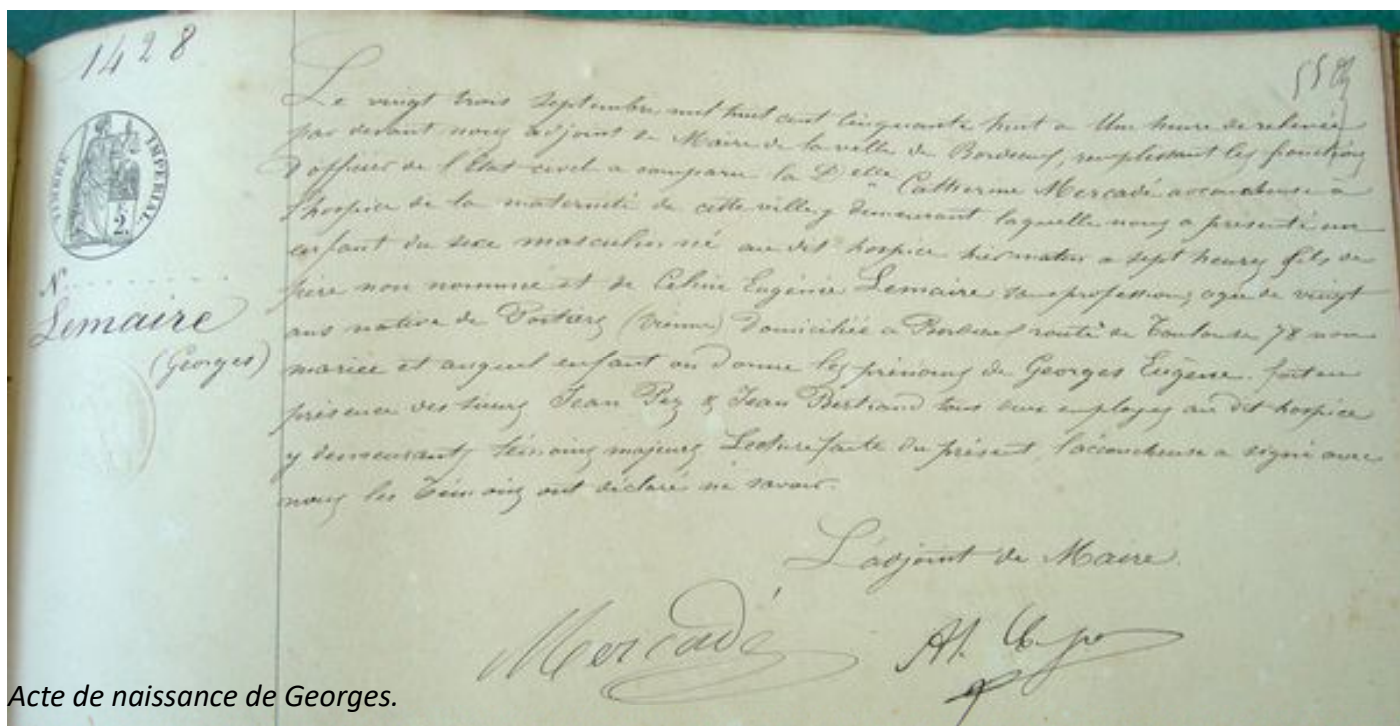 1428
TIMBRE IMPERIAL
2.
N°
Lemaire
(Georges)
Le vingt trois Septembre mil huit cent cinquante huit a Une heure de relevée
par devant nous adjoint de Maire de la ville de Bordeaux, remplissant les fonctions
d'officier de l'Etat civil a comparu la Delle Catherine Mercadé accoucheuse à
l'hospice de la maternité de cette ville y demeurant laquelle nous a présenté un
enfant du sexe masculin né au dit hospice hier matin a sept heures fils de
père non nommé et de Céline Eugénie Lemaire sans profession, agée de vingt
ans native de Poitiers (Vienne) Domiciliée a Bordeaux route de Toulouse 78 non
mariée et auquel enfant on donne les prénoms de Georges Eugène. fait en
présence des sieurs Jean Pez & Jean Bertrand tous deux employés au dit hospice
y demeurant, témoins majeurs Lecture faite du présent, l'accoucheuse a signé avec
nous les Témoins ont déclaré ne savoir.
L'adjoint de Maire.
Mercadé
Acte de naissance de Georges.